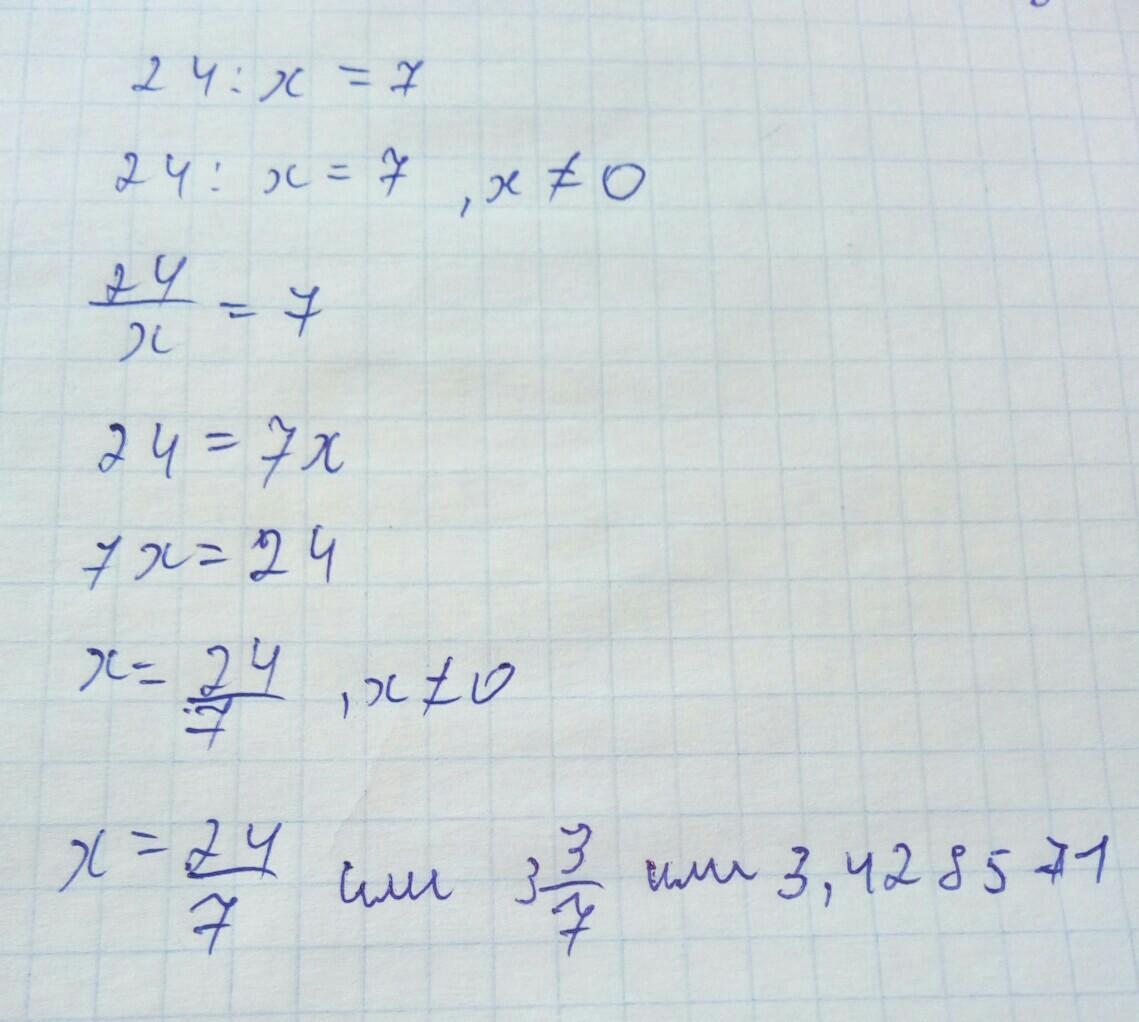 24 : x = 7
24 : x = 7 , x ≠ 0
24/x = 7
24 = 7x
7x = 24
x = 24/7 , x ≠ 0
x = 24/7 или 3 3/7 или 3,428571